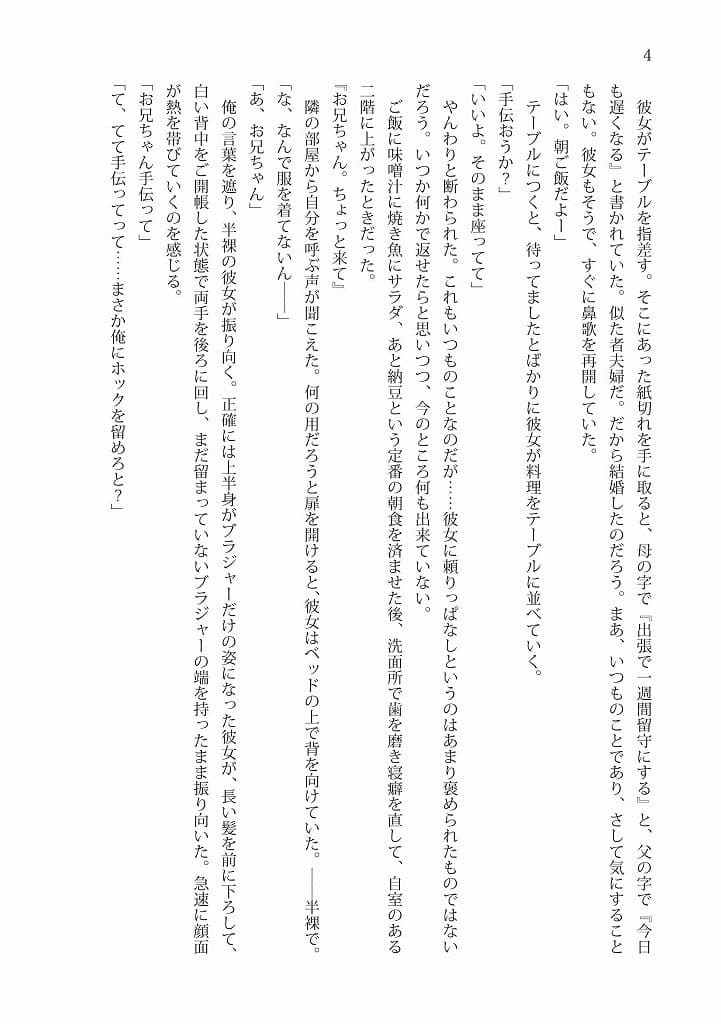 4
　彼女がテーブルを指差す。そこにあった紙切れを手に取ると、母の字で『出張で一週間留守にする』と、父の字で『今日
も遅くなる』と書かれていた。似た者夫婦だ。だから結婚したのだろう。まあ、いつものことであり、さして気にすること
もない。彼女もそうで、すぐに鼻歌を再開していた。
「はい。朝ご飯だよー」
　テーブルにつくと、待ってましたとばかりに彼女が料理をテーブルに並べていく。
「手伝おうか？」
「いいよ。そのまま座ってて」
　やんわりと断わられた。これもいつものことなのだが……彼女に頼りっぱなしというのはあまり褒められたものではない
だろう。いつか何かで返せたらと思いつつ、今のところ何も出来ていない。
　ご飯に味噌汁に焼き魚にサラダ、あと納豆という定番の朝食を済ませた後、洗面所で歯を磨き寝癖を直して、自室のある
二階に上がったときだった。
『お兄ちゃん。ちょっと来て』
　隣の部屋から自分を呼ぶ声が聞こえた。何の用だろうと扉を開けると、彼女はベッドの上で背を向けていた。――半裸で。
「な、なんで服を着てないん――」
「あ、お兄ちゃん」
　俺の言葉を遮り、半裸の彼女が振り向く。正確には上半身がブラジャーだけの姿になった彼女が、長い髪を前に下ろして、
白い背中をご開帳した状態で両手を後ろに回し、まだ留まっていないブラジャーの端を持ったまま振り向いた。急速に顔面
が熱を帯びていくのを感じる。
「お兄ちゃん手伝って」
「て、てて手伝ってって……まさか俺にホックを留めろと？」